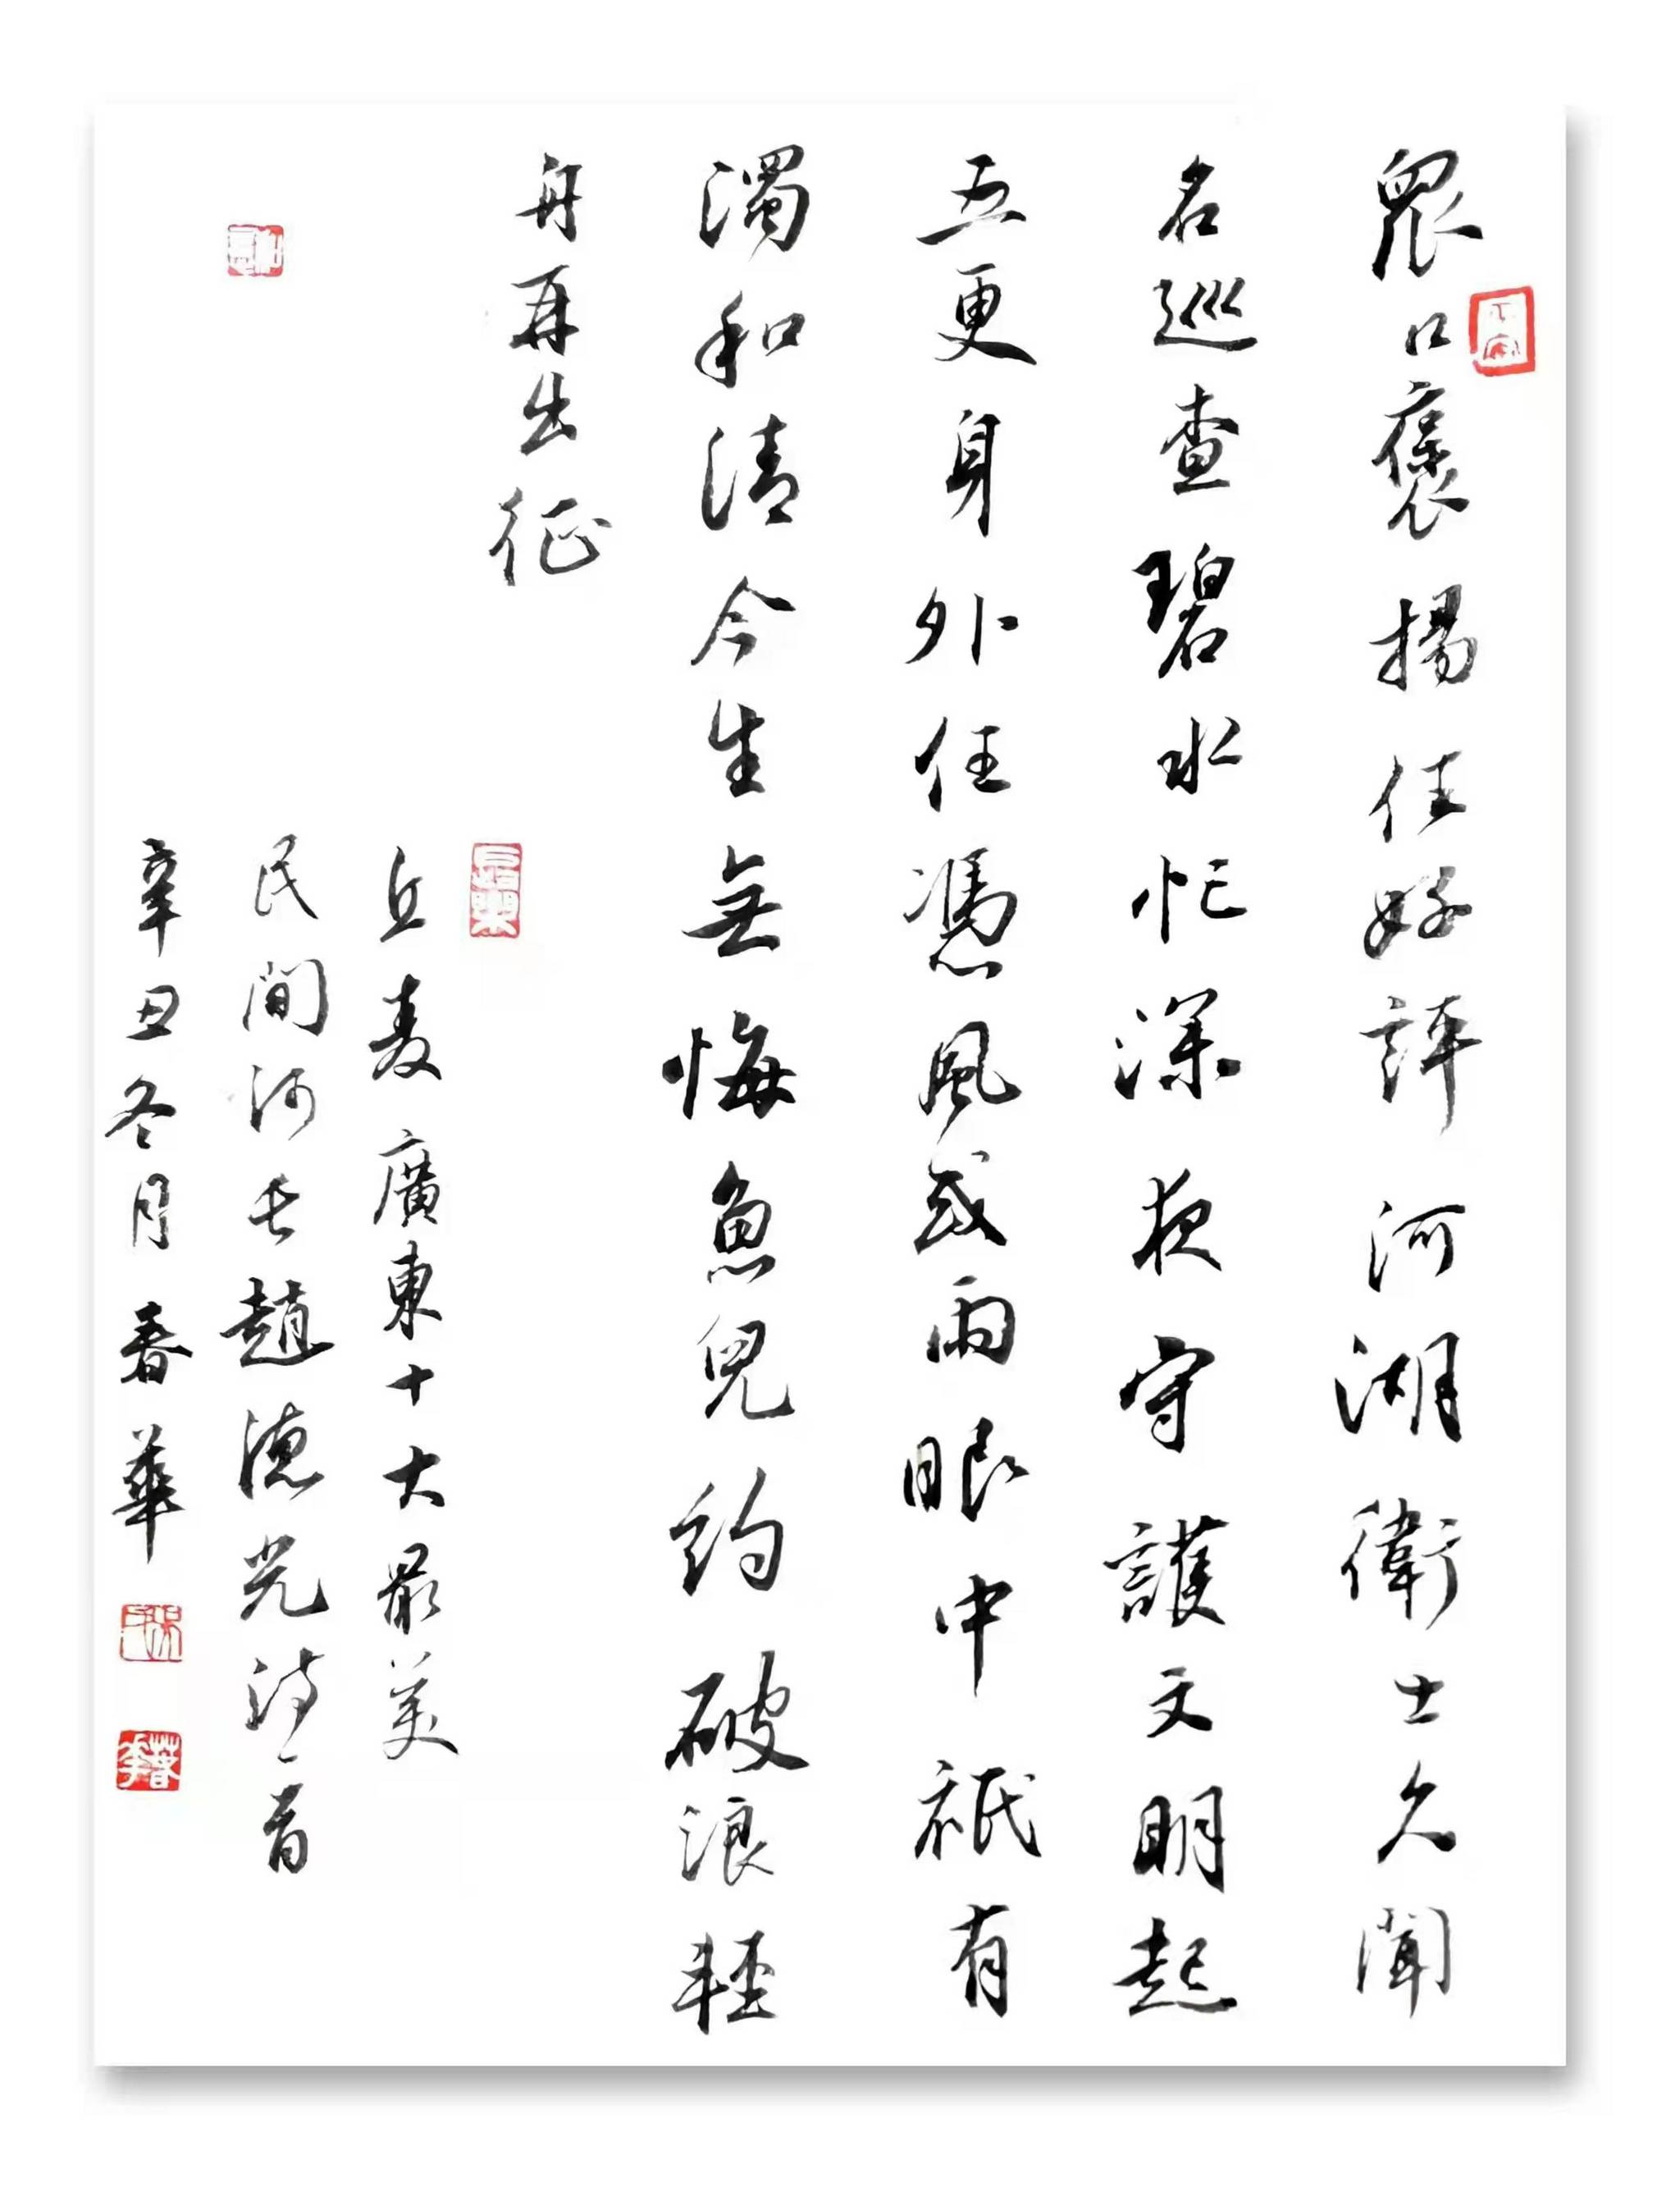 眾口褒揚任好評河湖衛士久聞
名巡查碧水忙深夜守護文明起
五更身外任憑風或雨眼中祇有
濁和清今生無悔魚兒約破浪輕
舟再出征
丘麦廣東十大最美
民間河長趙德光詩一首
辛丑冬月春華